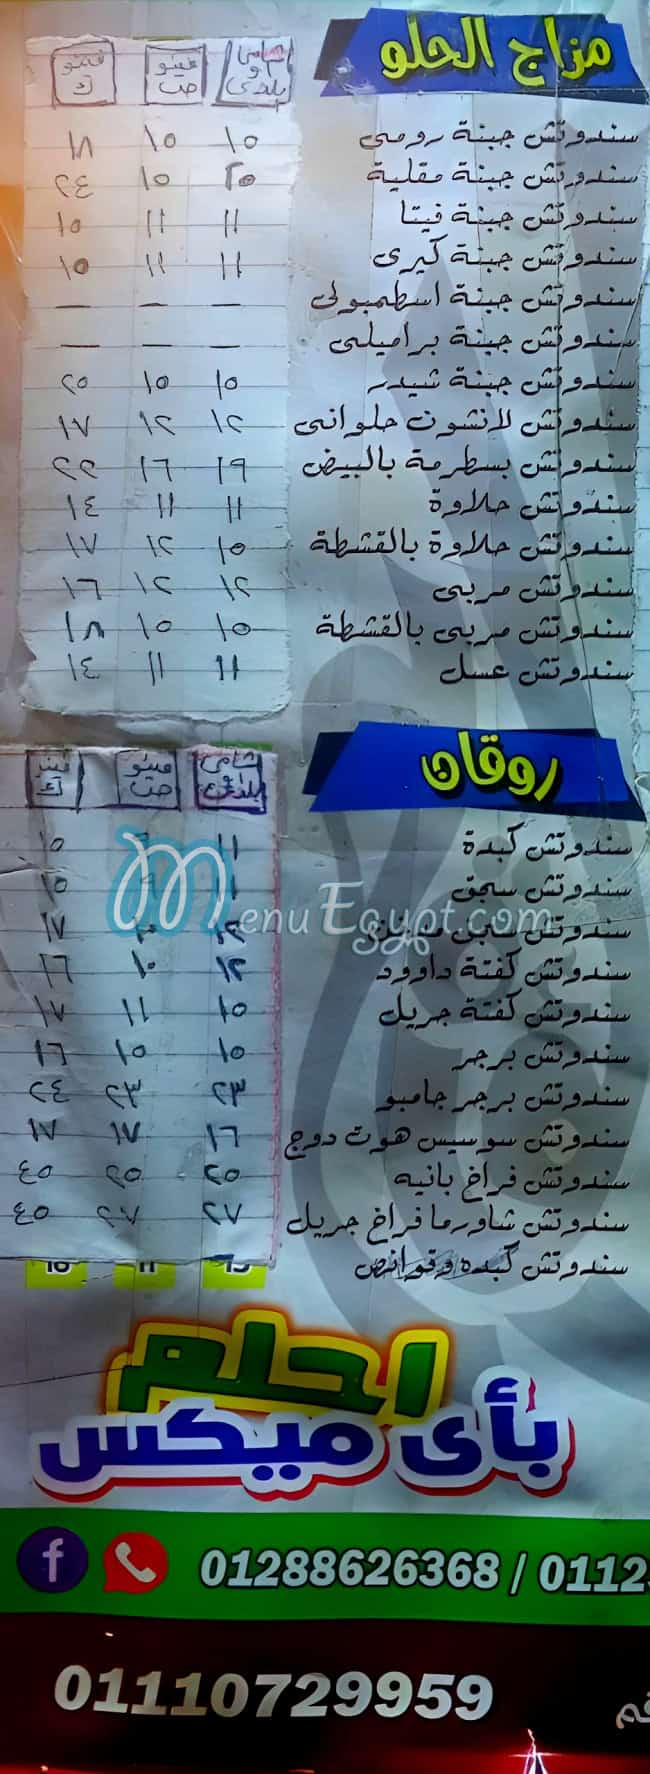 مزاج الحلو
شامى او بلدى فينو ص فينو ك
سندوتش جبنة رومى ١٥ ١٥ ١٨
سندوتش جبنة مقلية ٢٥ ١٥ ٢٤
سندوتش جبنة فيتا ١١ ١١ ١٥
سندوتش جبنة كيرى ١١ ١١ ١٥
سندوتش جبنة اسطمبولى — — —
سندوتش جبنة براميلى — — —
سندوتش جبنة شيدر ١٥ ١٥ ٢٥
سندوتش لانشون حلوانى ١٢ ١٢ ١٧
سندوتش بسطرمة بالبيض ١٩ ١٦ ٢٢
سندوتش حلاوة ١١ ١١ ١٤
سندوتش حلاوة بالقشطة ١٥ ١٢ ١٧
سندوتش مربى ١٢ ١٢ ١٦
سندوتش مربى بالقشطة ١٥ ١٥ ١٨
سندوتش عسل ١١ ١١ ١٤
روقان
شامى او بلدى فينو ص فينو ك
سندوتش كبدة ١١ ١٥
سندوتش سجق ١١ ٩ ١٥
MenuEgypt.com
سندوتش ١٢ ١٧
سندوتش كفتة داوود ١٢ ١٠ ١٦
سندوتش كفتة جريل ١٥ ١١ ١٧
سندوتش برجر ١٥ ١٥ ١٦
سندوتش برجر جامبو ٢٣ ٢٣ ٢٤
سندوتش سوسيس هوت دوج ١٦ ١٧ ١٧
سندوتش فراخ بانيه ٢٥ ٢٥ ٤٥
سندوتش شاورما فراخ جريل ٢٧ ٢٧ ٤٥
سندوتش كبده وقوانص
احلم
بأى ميكس
01288626368 / 0112
01110729959